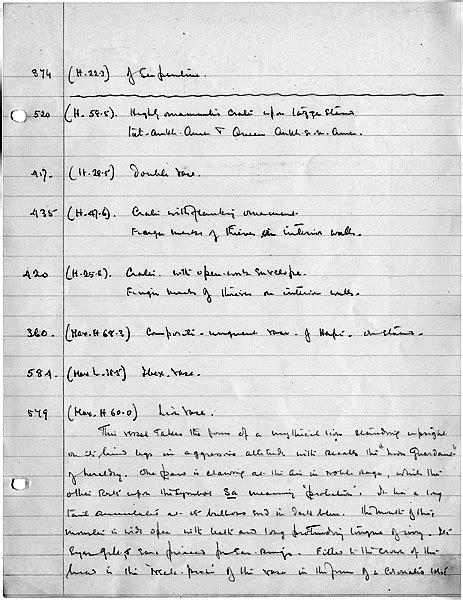 374 (H. 22.3) of Serpentine.
520 (H. 58.5). Highly ornamented Crater upon lattice stand
Tut-Ankh-Amen & Queen Ankh.s.en.Amen.
417. (H. 28.5) Double vase.
435 (H. 47.6). Crater with flanking ornament.
Finger marks of thieves on interior walls.
420 (H. 25.6). Crater. with open-work envelope.
Finger marks of thieves on interior walls.
360. (Max. H 68.3) Composite unguent vase of Hapi. on stand.
584. (Max L. 38.5) Ibex vase.
579 (Max. H 60.0) Lion vase.
This vessel takes the form of a mythical lion standing upright
on its hind legs in aggressive attitude with recalls the "Lion Guardant"
of heraldry. One paw is clawing at the air in noble rage, while the
other rests upon the symbol Sa meaning 'protection'. It has a long
tail at its bulbous end in dark blue. The mouth of this
monster is wide open with teeth and long protruding tongue of ivory. Its
Eyes gilt & Ears pierced for Ear-rings. Fitted to the crown of the
head is the 'neck-piece' of the vase in the form of a